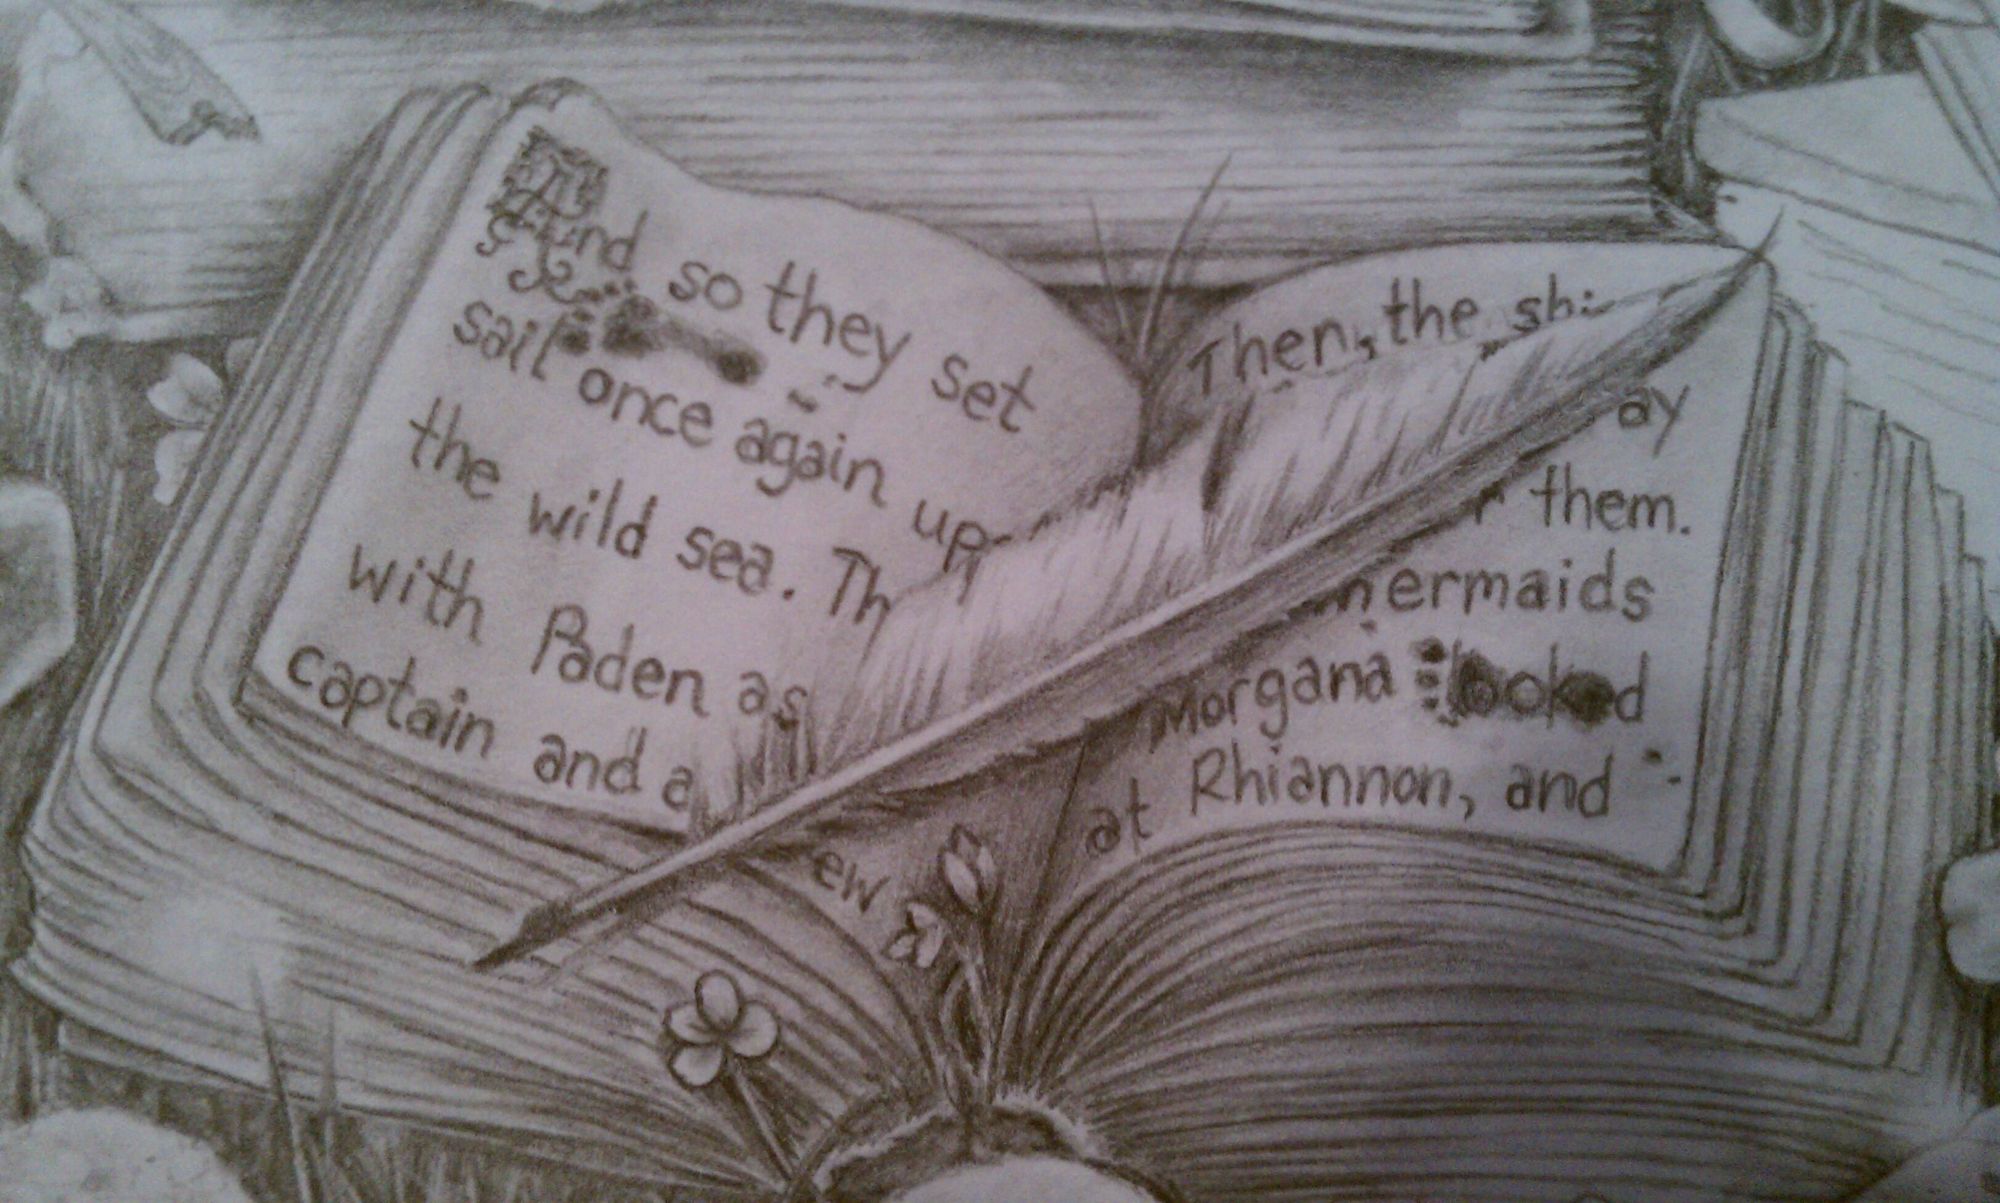 And so they set
sail once again
the wild sea.
with Paden as
captain and a
Then, the
them.
mermaids
Morgana looked
at Rhiannon, and